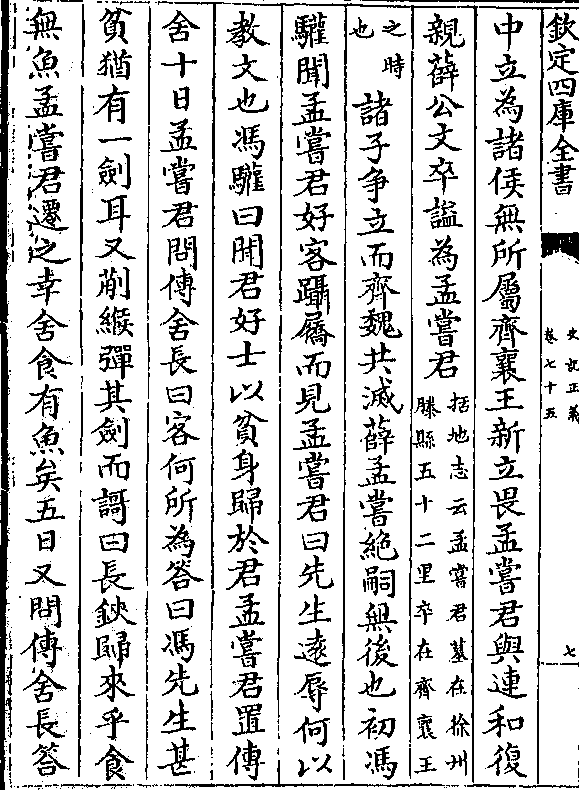 欽定四庫全書
史記正義
卷七十五
七
中立為諸侯無所屬齊襄王新立畏孟嘗君與連和復
親薛公文卒諡為孟嘗君
括地志云孟嘗君墓在徐州
滕縣五十二里卒在齊襄王
之時
也
諸子爭立而齊魏共滅薛孟嘗絶嗣無後也初馮
驩聞孟嘗君好客躡屩而見孟嘗君曰先生逺辱何以
教文也馮驩曰聞君好士以貧身歸於君孟嘗君置傳
舍十日孟嘗君問傳舍長曰客何所為答曰馮先生甚
貧猶有一劍耳又蒯緱彈其劍而謌曰長鋏歸來乎食
無魚孟嘗君遷之幸舍食有魚矣五日又問傳舍長答